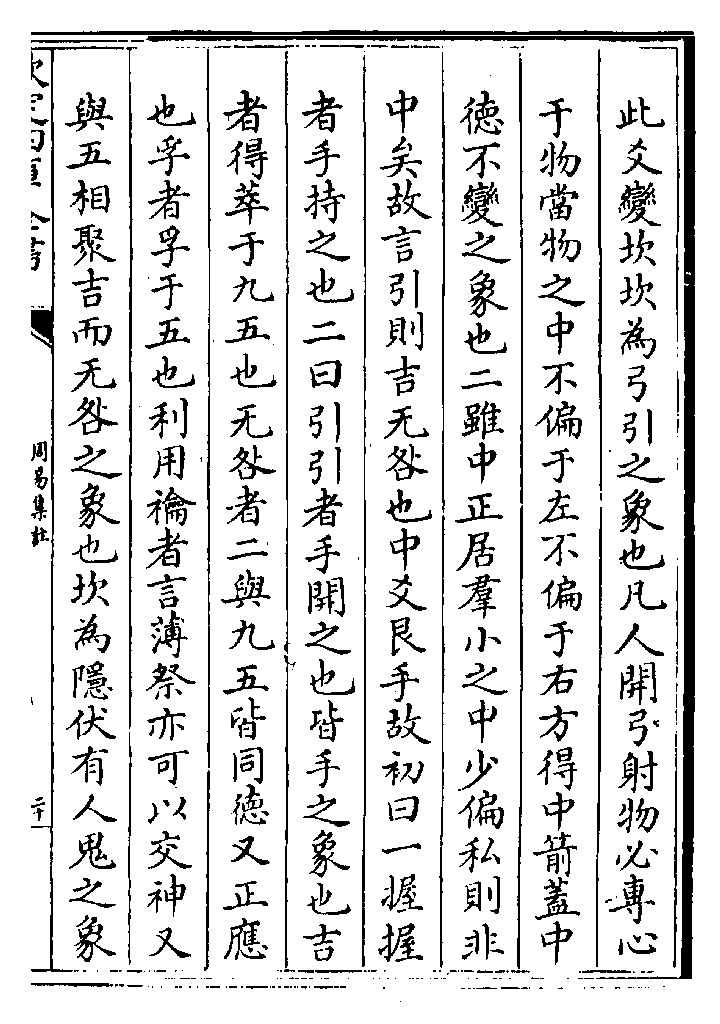 此爻變坎坎為弓引之象也凡人開弓射物必專心
于物當物之中不偏于左不偏于右方得中箭蓋中
德不變之象也二雖中正居羣小之中少偏私則非
中矣故言引則吉无咎也中爻艮手故初曰一握握
者手持之也二曰引引者手開之也皆手之象也吉
者得萃于九五也无咎者二與九五皆同德又正應
也孚者孚于五也利用禴者言薄祭亦可以交神又
與五相聚吉而无咎之象也坎為隱伏有人鬼之象
欽定四庫全書
周易集註
二十